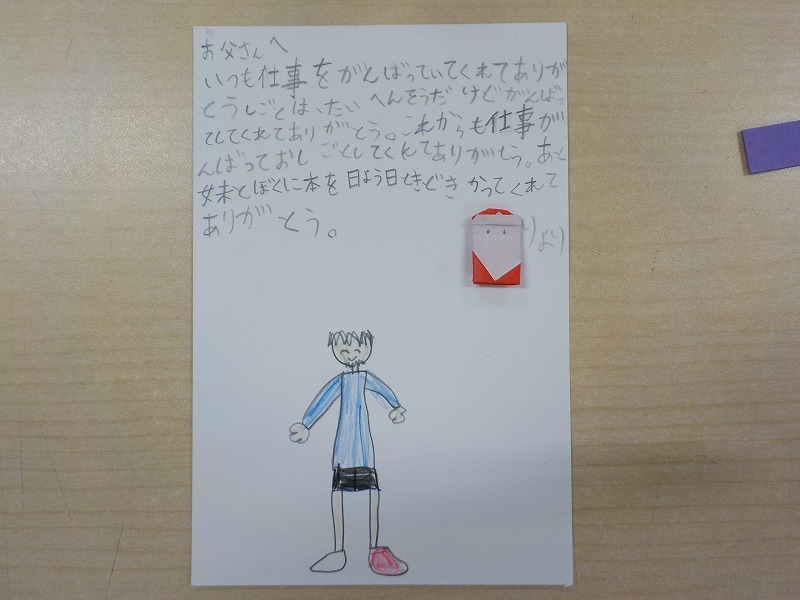 お父さんへ
いつも仕事をがんばっていてくれてありが
とうしごとは、たいへんそうだけどがんばっ
てしてくれてありがとう。これからも仕事が
んばっておしごとしてくれてありがとう。あと
妹とぼくに本を日よう日ときどきかってくれて
ありがとう。
りより